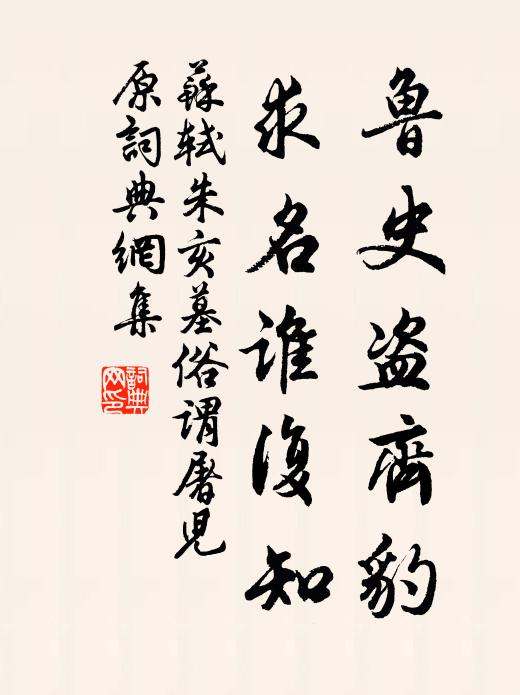 鲁史盗齊豹
求名谁復知
蘇軾朱亥墓俗謂屠兒
原詞典網集
詞典網印